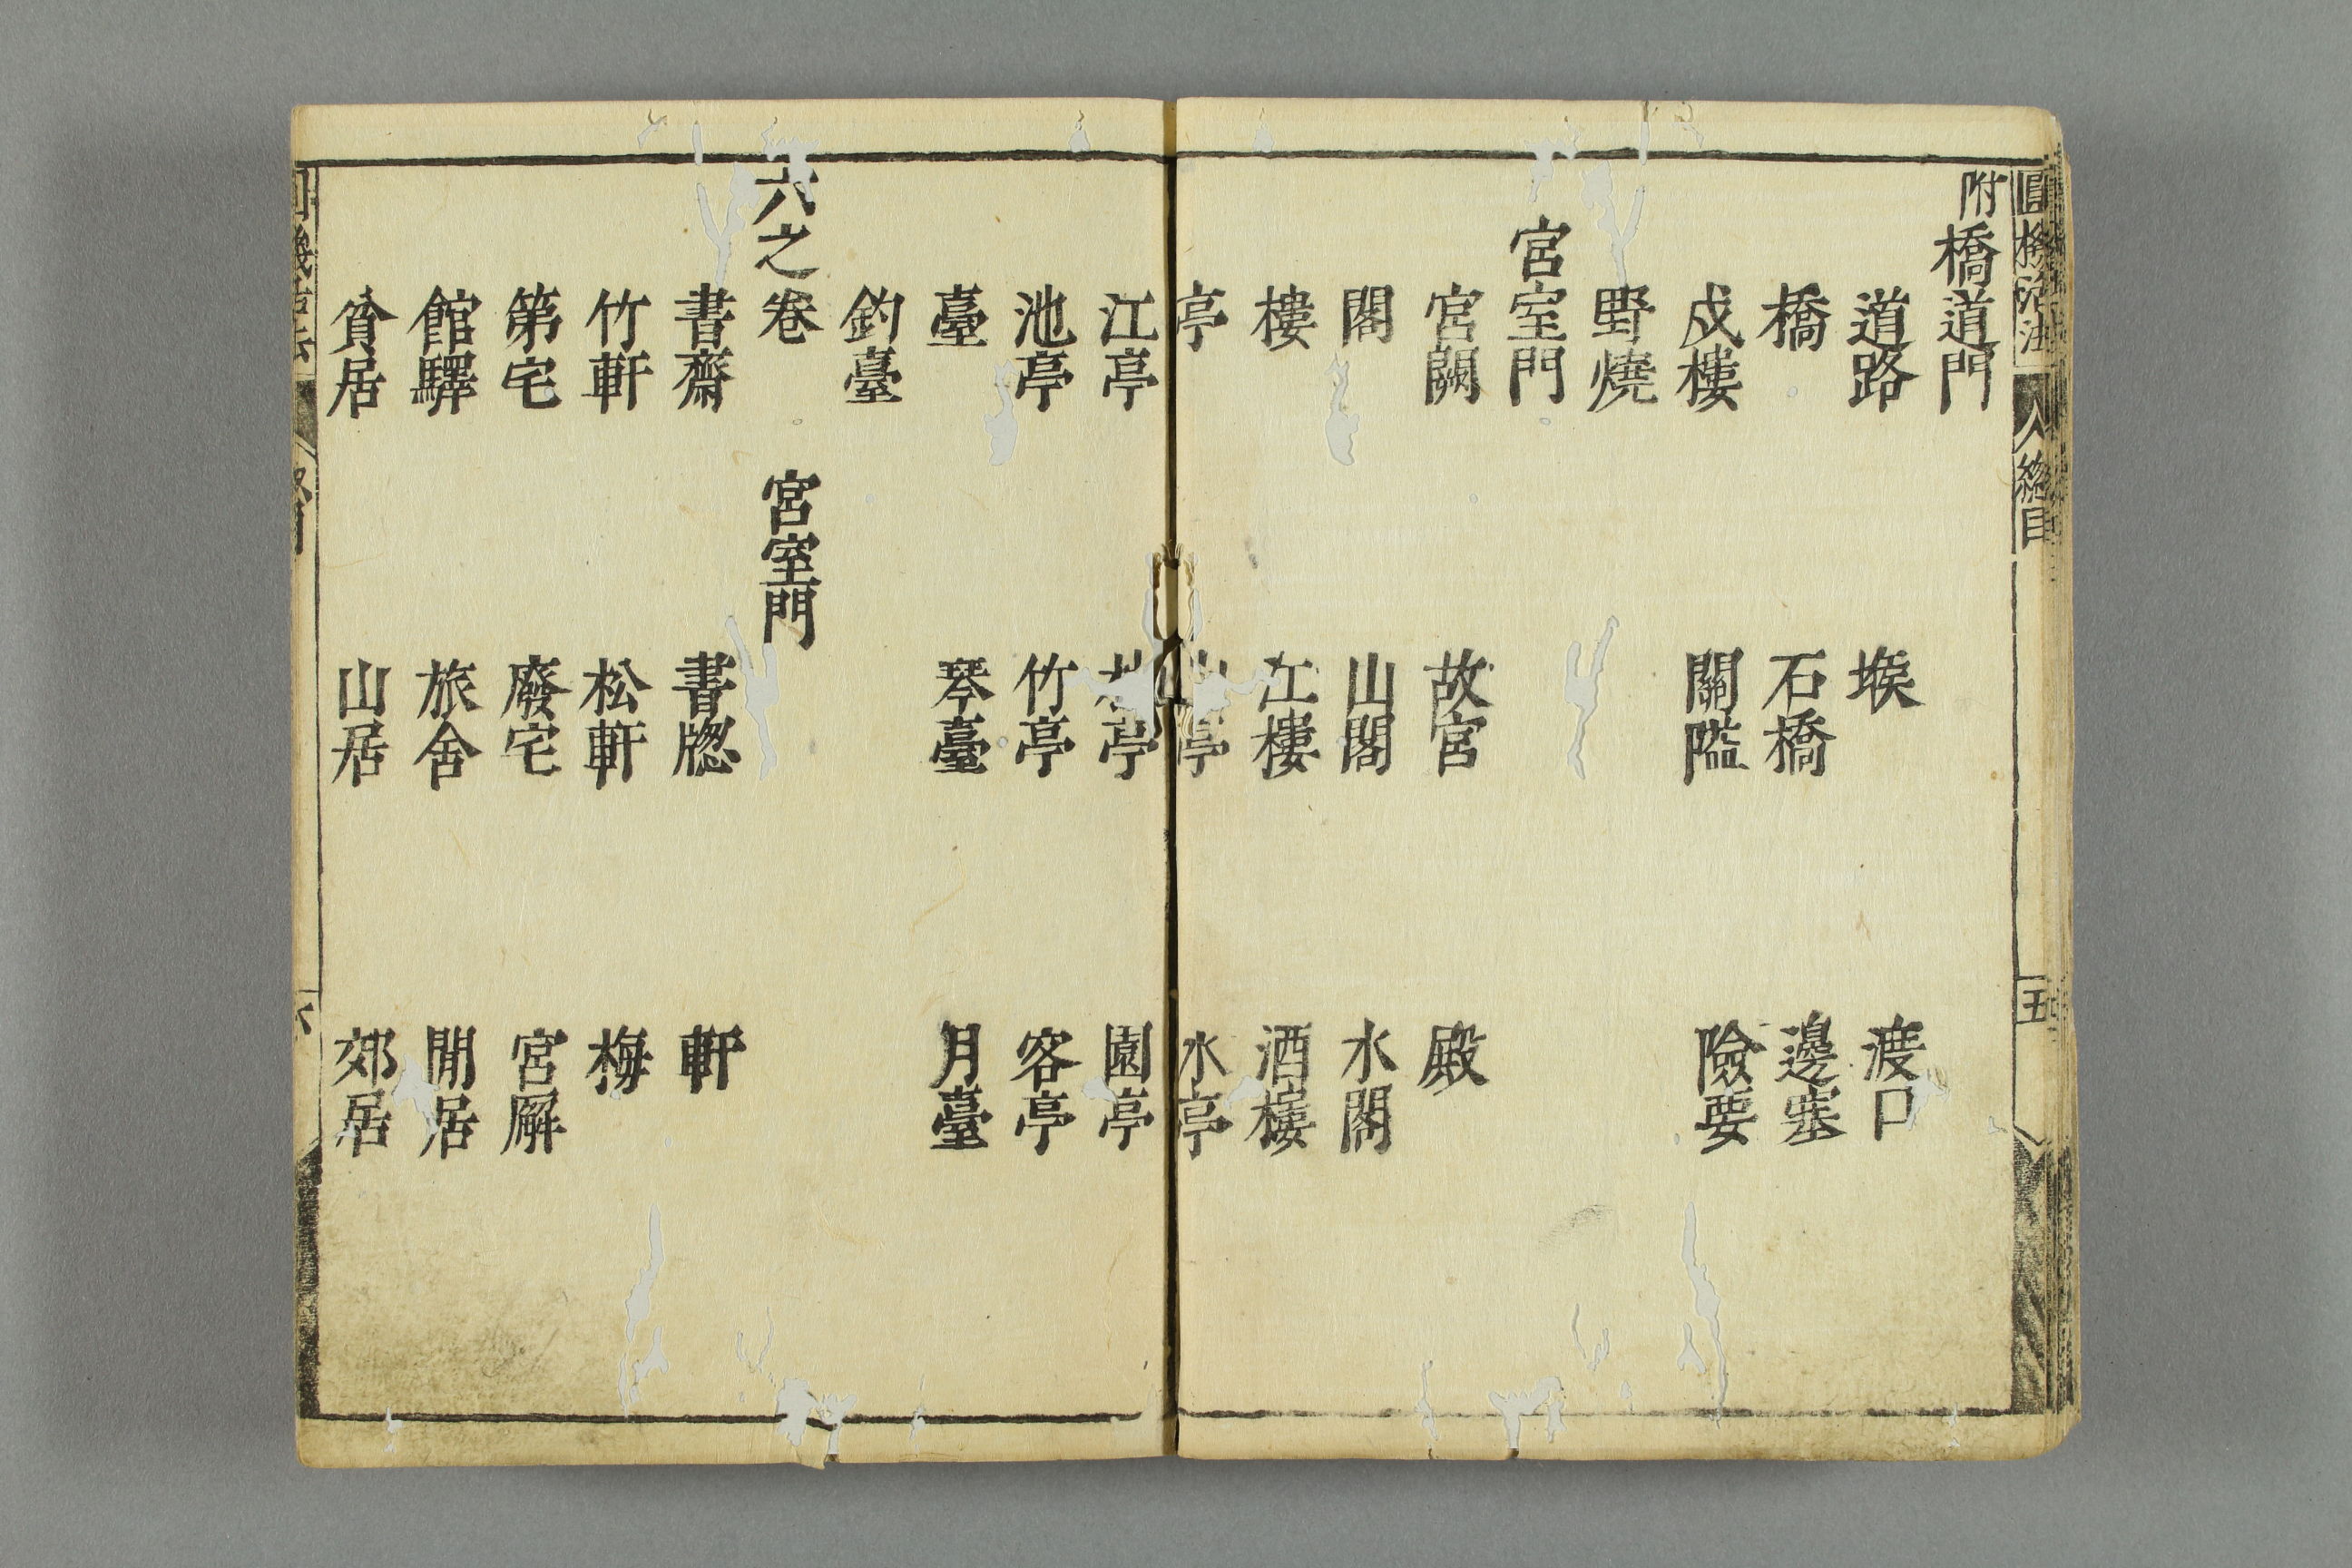 圓機活法 人 總目 五
附橋道門
道路 堠 渡口
橋 石橋 邊塞
戍樓 關隘 險要
野燒
宮室門
宮闕 故宮 殿
閣 山閣 水閣
樓 江樓 酒樓
亭 山亭 水亭
江亭 亭 園亭
池亭 竹亭 客亭
臺 琴臺 月臺
釣臺
六之卷 宮室門
書齋 書牕 軒
竹軒 松軒 梅
第宅 廢宅 宮廨
館驛 旅舍 閒居
貧居 山居 郊居